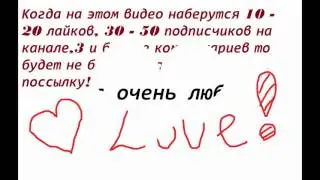 Когда на этом видео наберутся 10 -
20 лайков, 30 - 50 подписчиков на
канале,3 и б
будет не б
поссылку!
- очень люб
Luve!